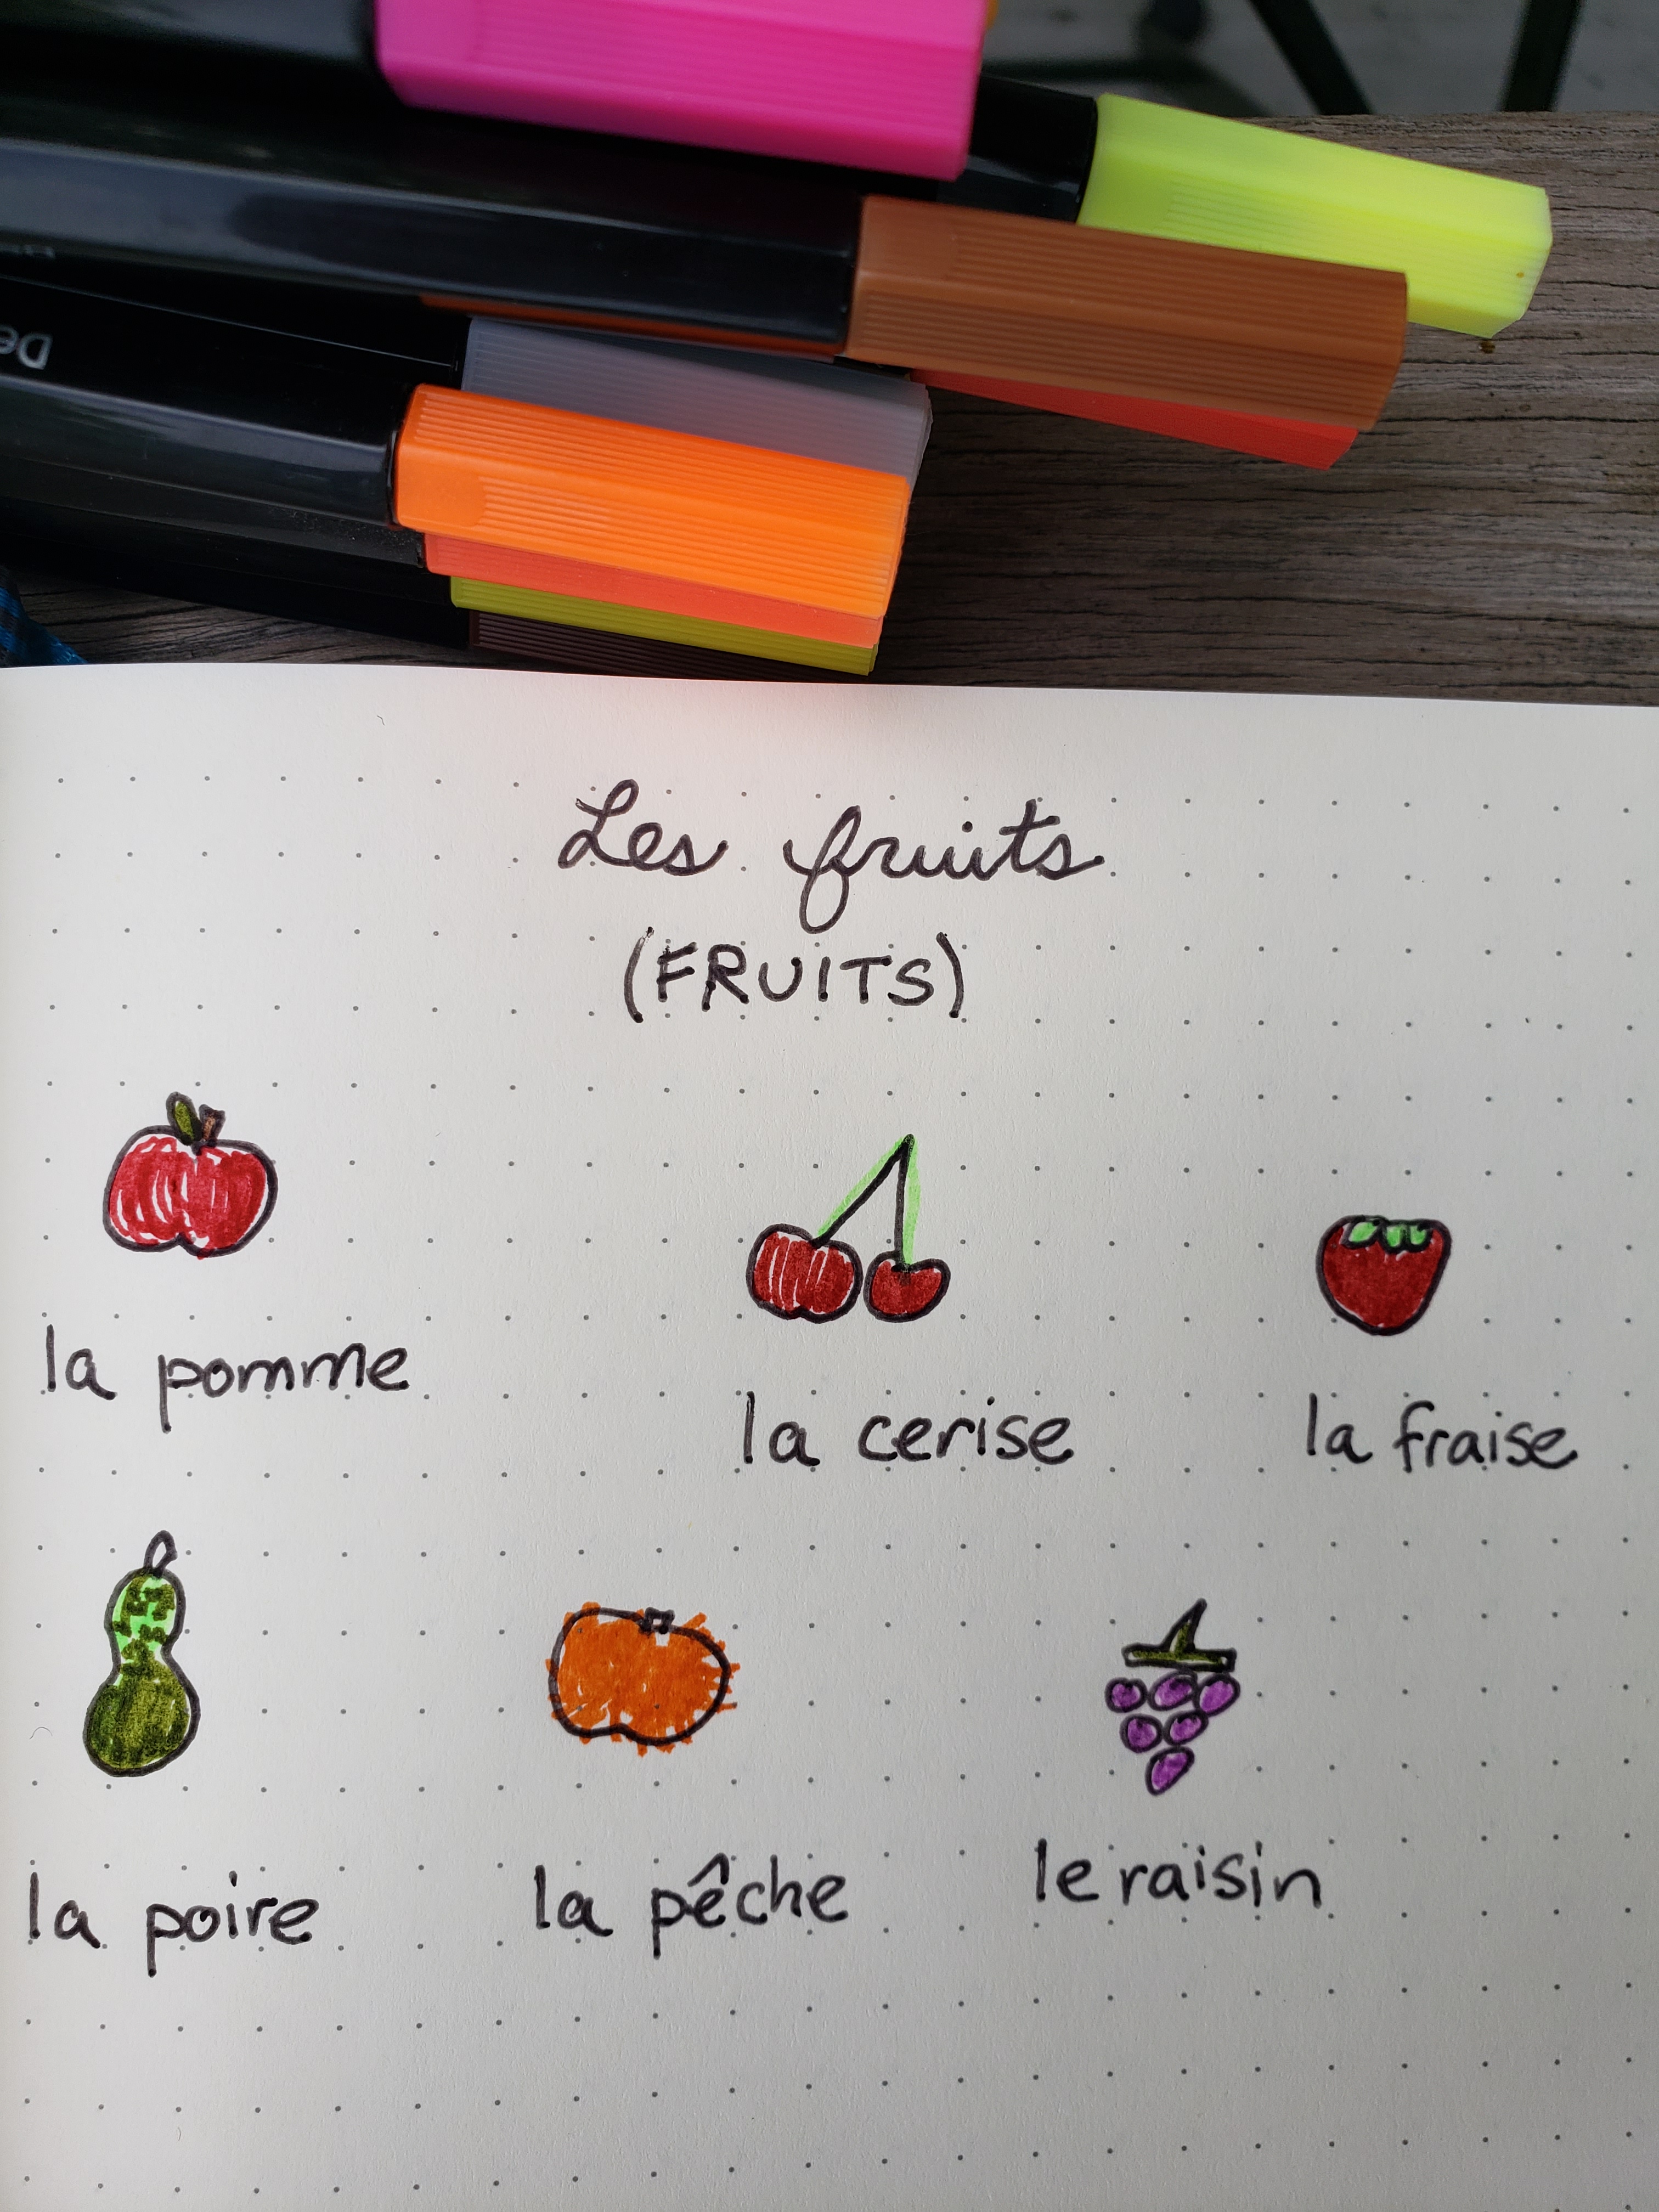 Les fruits
(FRUITS)
la pomme
la cerise
la fraise
la poire
la pêche
le raisin